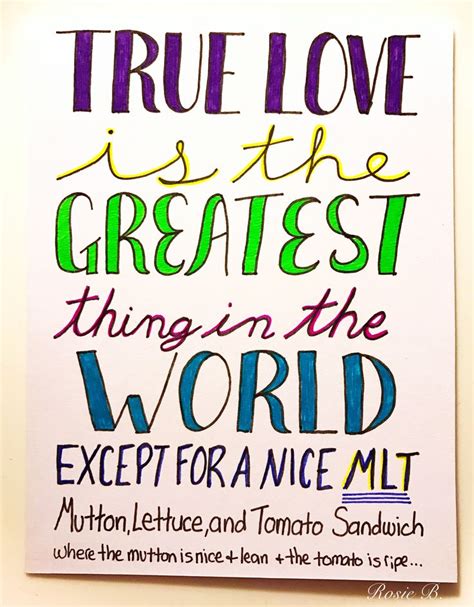 TRUE LOVE
is the
GREATEST
thing in the
WORLD
EXCEPT FOR A NICE MLT
Mutton, Lettuce, and Tomato Sandwich
where the mutton is nice + lean + the tomato is ripe...
Rosie B.